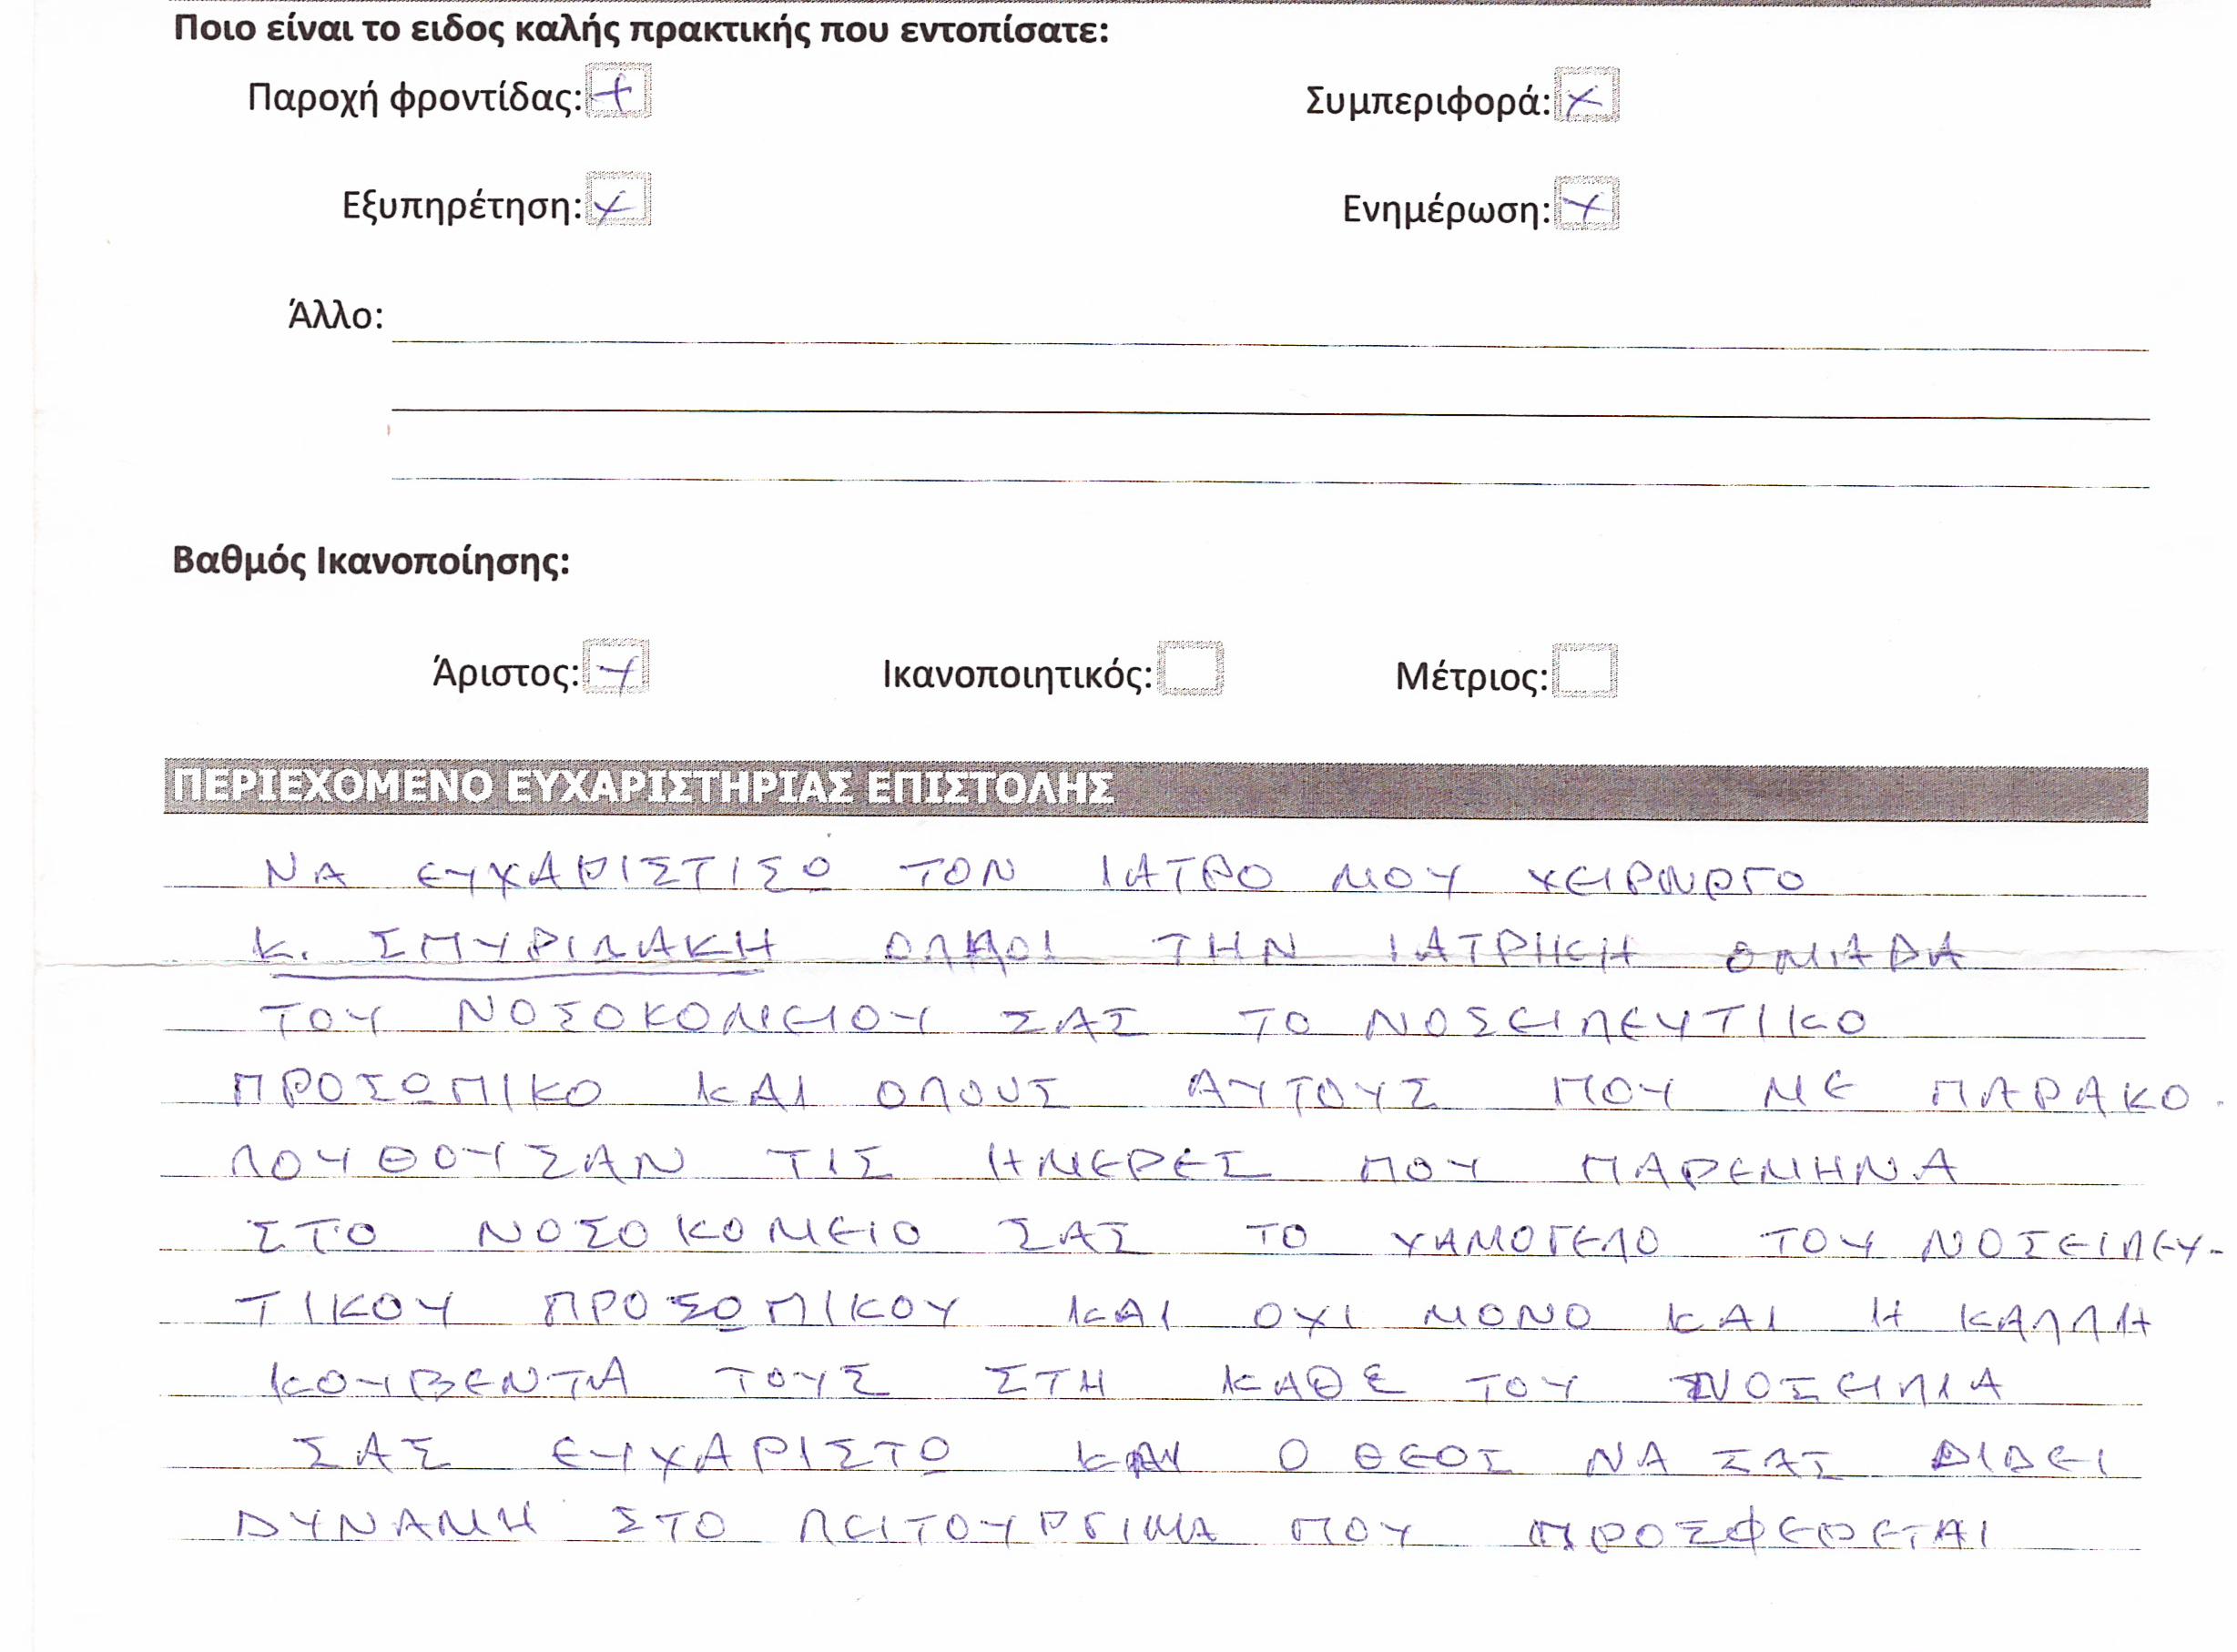 Ποιο είναι το ειδος καλής πρακτικής που εντοπίσατε:
Παροχή φροντίδας: + Συμπεριφορά: x
Εξυπηρέτηση: x Ενημέρωση: x
Άλλο:
Βαθμός Ικανοποίησης:
Άριστος: x Ικανοποιητικός: Μέτριος:
ΠΕΡΙΕΧΟΜΕΝΟ ΕΥΧΑΡΙΣΤΗΡΙΑΣ ΕΠΙΣΤΟΛΗΣ
ΝΑ ΕΥΧΑΡΙΣΤΙΣΩ ΤΟΝ ΙΑΤΡΟ ΜΟΥ
Κ. ΣΠΥΡΙΔΑΚΗ ΤΗΝ ΙΑΤΡΗΚΗ ΟΜΙΑΔΑ
ΤΟΥ ΝΟΣΟΚΟΜΕΙΟΥ ΣΑΣ ΤΟ ΝΟΣΕΙΛΕΥΤΙΚΟ
ΠΡΟΣΩΠΙΚΟ ΚΑΙ ΟΛΟΥΣ ΑΥΤΟΥΣ ΠΟΥ ΜΕ ΠΑΡΑΚΟ.
ΛΟΥΘΟΥΣΑΝ ΤΙΣ ΗΜΕΡΕΣ ΠΟΥ ΠΑΡΕΜΗΝΑ
ΣΤΟ ΝΟΣΟΚΟΜΕΙΟ ΣΑΣ ΤΟ ΧΑΜΟΓΕΛΟ ΤΟΥ ΝΟΣΕΙΛΕΥ-
ΤΙΚΟΥ ΠΡΟΣΩΠΙΚΟΥ ΚΑΙ ΟΧΙ ΜΟΝΟ ΚΑΙ Η ΚΑΛΛΗ
ΚΟΥΒΕΝΤΑ ΤΟΥΣ ΣΤΗ ΚΑΘΕ ΤΟΥ ΝΟΣΕΙΛΙΑ
ΣΑΣ ΕΥΧΑΡΙΣΤΩ ΚΑΙ Ο ΘΕΟΣ ΝΑ ΣΑΣ ΔΙΔΕΙ
ΔΥΝΑΜΗ ΣΤΟ ΛΕΙΤΟΥΡΓΙΜΑ ΠΟΥ ΠΡΟΣΦΕΡΕΤΑΙ